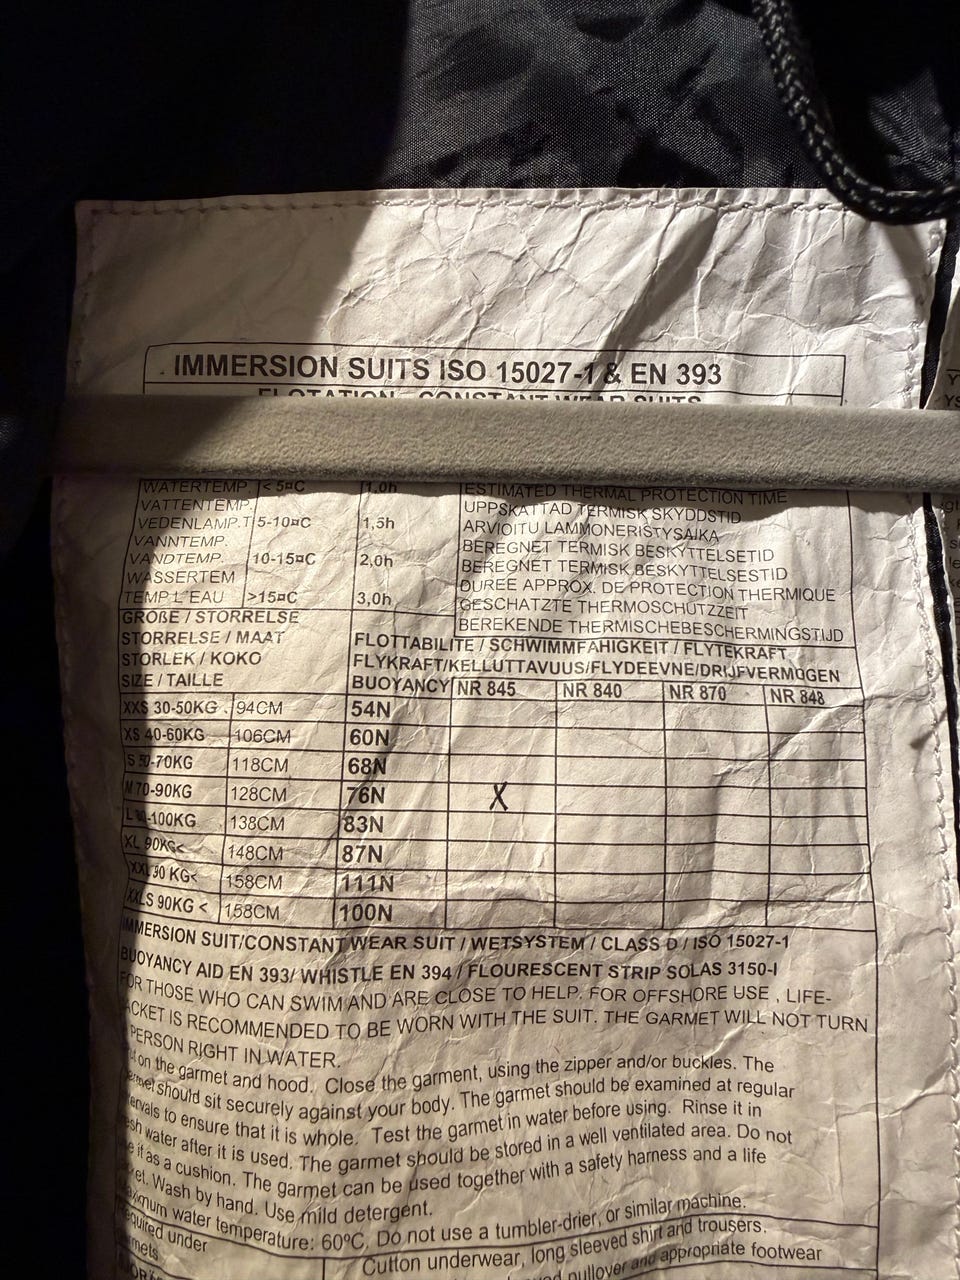 IMMERSION SUITS ISO 15027-1 & EN 393
FLOTATION - CONSTANT WEAR SUITS
WATERTEMP. < 5¤C 1,0h ESTIMATED THERMAL PROTECTION TIME
VATTENTEMP. UPPSKATTAD TERMISK SKYDDSTID
VEDENLAMP.T 5-10¤C 1,5h ARVIOITU LAMMONERISTYSAIKA
VANNTEMP. BEREGNET TERMISK BESKYTTELSETID
VANDTEMP. 10-15¤C 2,0h BEREGNET TERMISK BESKYTTELSESTID
WASSERTEM DUREE APPROX. DE PROTECTION THERMIQUE
TEMP L'EAU >15¤C 3,0h GESCHATZTE THERMOSCHUTZZEIT
BEREKENDE THERMISCHEBESCHERMINGSTIJD
GROßE / STORRELSE
STORRELSE / MAAT FLOTTABILITE / SCHWIMMFAHIGKEIT / FLYTEKRAFT
STORLEK / KOKO FLYKRAFT/KELLUTTAVUUS/FLYDEEVNE/DRIJFVERMOGEN
SIZE / TAILLE BUOYANCY NR 845 NR 840 NR 870 NR 848
XXS 30-50KG 94CM 54N
XS 40-60KG 106CM 60N
S 50-70KG 118CM 68N
M 70-90KG 128CM 76N X
L -100KG 138CM 83N
XL 90KG< 148CM 87N
XXL 90 KG< 158CM 111N
XXLS 90KG < 158CM 100N
IMMERSION SUIT/CONSTANT WEAR SUIT / WETSYSTEM / CLASS D / ISO 15027-1
BUOYANCY AID EN 393/ WHISTLE EN 394 / FLOURESCENT STRIP SOLAS 3150-I
FOR THOSE WHO CAN SWIM AND ARE CLOSE TO HELP. FOR OFFSHORE USE , LIFE-
JACKET IS RECOMMENDED TO BE WORN WITH THE SUIT. THE GARMET WILL NOT TURN
PERSON RIGHT IN WATER.
on the garmet and hood. Close the garment, using the zipper and/or buckles. The
garmet should sit securely against your body. The garmet should be examined at regular
intervals to ensure that it is whole. Test the garmet in water before using. Rinse it in
fresh water after it is used. The garmet should be stored in a well ventilated area. Do not
use it as a cushion. The garmet can be used together with a safety harness and a life
jacket. Wash by hand. Use mild detergent.
Maximum water temperature: 60ºC. Do not use a tumbler-drier, or similar machine.
required under Cutton underwear, long sleeved shirt and trousers.
garmets. pullover and appropriate footwear